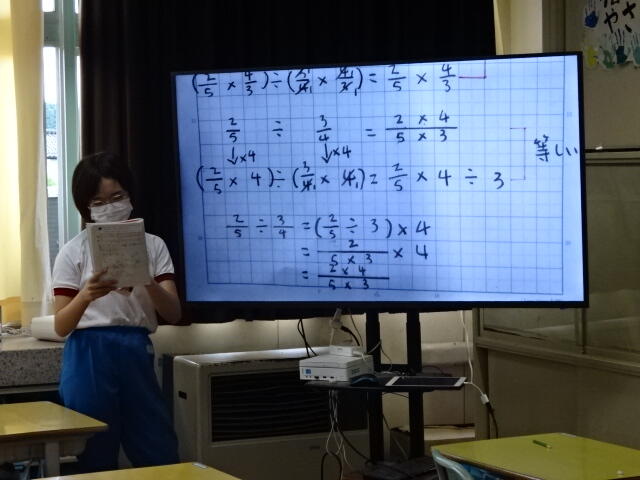 (2/5 × 4/3) ÷ (3/4 × 4/3) = 2/5 × 4/3
2/5 ÷ 3/4 = 2 × 4/5 × 3
↓×4 ↓×4
等しい
(2/5 × 4) ÷ (3/4 × 4) = 2/5 × 4 ÷ 3
2/5 ÷ 3/4 = (2/5 ÷ 3) × 4
= 2/5 × 3 × 4
= 2 × 4/5 × 3